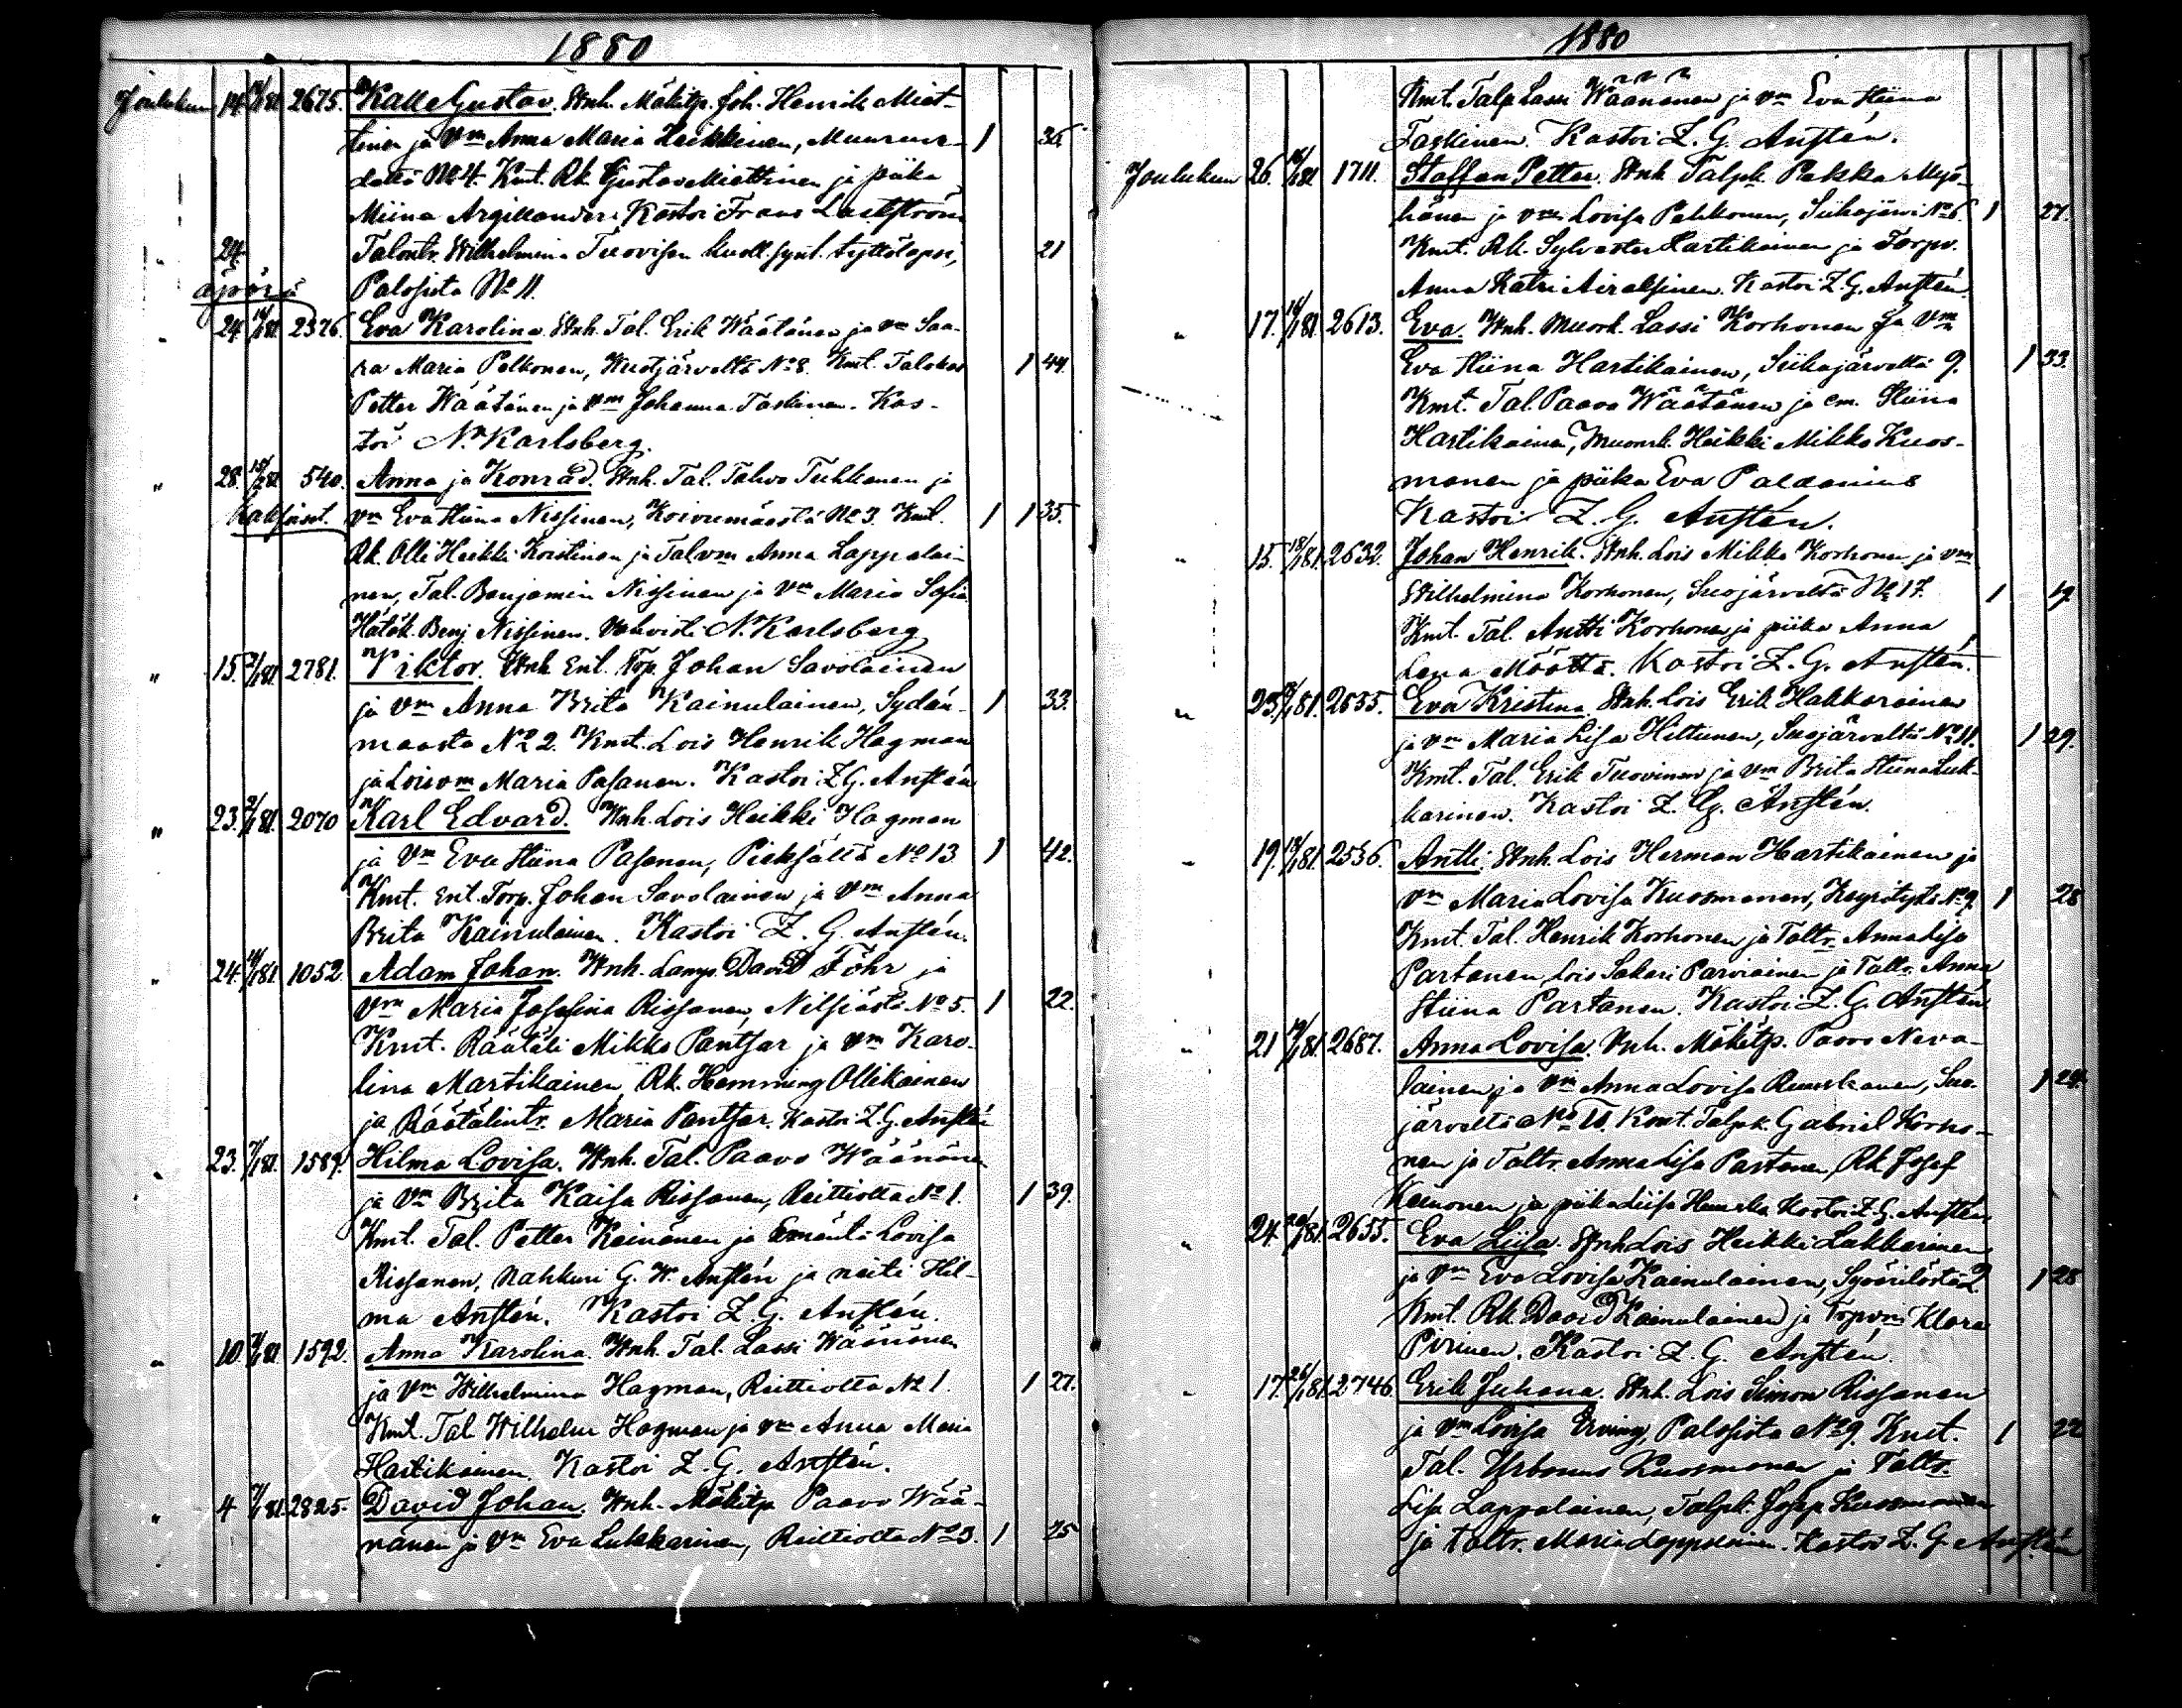 1880
Joulukun 14. 2675. Kalle Gustav. Wnh. Mökitp. Joh. Henrik Miet-
tinen ja Vm Anna Maria Heikkinen, Muurur- 1 36.
della No 4. Kmt. Rk. Gustav Miettinen ja piika
Miina Argillander. Kastoi Frans Lackström
" 24. Talontr. Wilhelmina Tuovisen kuoll. synt. tyttölapsi, 21
äpärä Palosista No 11.
" 24. 2376. Eva Karolina. Wnh. Tal. Erik Wäätänen ja Vm Saa-
ra Maria Pelkonen, No 8. Kmt. Talokas 1 44.
Petter Wäätänen ja Vm Johanna Taskinen. Kas-
toi N. Karlsberg.
" 28. 15/1 81 540. Anna ja Konrad. Wnh. Tal. Tahvo Tuhkanen ja
Kaksoiset. Vm Eva Stiina Nissinen, Koivumäestä No 3. Kmt. 1 1 35.
Rk. Olli Heikki Koistinen ja Talvm Anna Lappalai-
nen, Tal. Benjamin Nissinen ja Vm Maria Sofia.
Hätäk. Benj. Nissinen. Vahvisti N. Karlsberg
" 15. 2/1 81. 2781. Viktor. Wnh Ent. Torp. Johan Savolainen
ja Vm Anna Brita Kainulainen, Sydän- 1 33.
maasta No 2. Kmt. Lois Henrik Hagman
ja Loisvm Maria Pasanen. Kastoi Z. G. Anstén
" 23. 2/1 81. 2070 Karl Edvard. Wnh. Lois Heikki Hagman
ja Vm Eva Stiina Pasanen, Pieksältä No 13 1 42.
Kmt. Ent. Torp. Johan Savolainen ja Vm Anna
Brita Kainulainen. Kastoi Z. G. Anstén.
" 24. 81. 1052 Adam Johan. Wnh. Lamp. David Föhr ja
Vm Maria Josefina Rissanen, Nilsiästä No 5. 1 22.
Kmt. Räätäli Mikko Pantsar ja Vm Karo-
lina Martikainen, Rk. Hemming Ollikainen
ja Räätälintr. Maria Pantsar. Kastoi Z. G. Anstén
" 23. 7/1 81. 1589. Hilma Lovisa. Wnh. Tal. Paavo Väänänen
ja Vm Brita Kaisa Rissanen, Reittiolta No 1. 1 39.
Kmt. Tal. Petter Keinänen ja Emäntä Lovisa
Rissanen, Nahkuri G. W. Anstén ja neiti Hil-
ma Anstén. Kastoi Z. G. Anstén.
" 10. 7/1 81. 1592. Anna Karolina. Wnh. Tal. Lassi Wäänänen
ja Vm Wilhelmina Hagman, Reittiolta No 1. 1 27.
Kmt. Tal. Wilhelm Hagman ja Vm Anna Maria
Hartikainen. Kastoi Z. G. Anstén.
" 4 7/1 81. 2825. David Johan. Wnh. Mökitp Paavo Wää-
nänen ja Vm Eva Lukkarinen, Reittiolta No 3. 1 25
1880
Kmt. Talp Lassi Wäänänen ja Vm Eva Stiina
Taskinen. Kastoi Z. G. Anstén.
Joulukun 26. 1711. Staffan Petter. Wnh Talpk. Pekka Myö-
hänen ja Vm Lovisa Pehkonen, Siikajärvi No 6. 1 27.
Kmt. Rk. Sylvester Hartikainen ja Torpv.
Anna Katri Airaksinen. Kastoi Z. G. Anstén.
" 17. 81. 2613. Eva. Wnh. Muork. Lassi Korhonen ja Vm
Eva Stiina Hartikainen, Siikajärveltä 9. 1 33.
Kmt. Tal. Paavo Wäätänen ja em. Stiina
Hartikainen, Muonk. Heikki Mikko Kuos-
manen ja piika Eva Paldanius
Kastoi Z. G. Anstén.
" 15. 18/1 81. 2632. Johan Henrik. Wnh. Lois Mikko Korhonen ja Vm
Wilhelmina Korhonen, Suojärveltä No 17. 1 19.
Kmt. Tal. Antti Korhonen ja piika Anna
Lena Määttä. Kastoi Z. G. Anstén.
" 25. 81. 2635. Eva Kristina. Wnh. Lois Erik Hakkarainen
ja Vm Maria Lisa Hiltunen, Suojärveltä No 11. 1 29.
Kmt. Tal. Erik Tuovinen ja Vm Brita Stiina Luk-
karinen. Kastoi Z. G. Anstén.
" 19. 81. 2536. Antti. Wnh. Lois Herman Hartikainen ja
Vm Maria Lovisa Kuosmanen, Keyritystä No 9. 1 28
Kmt. Tal. Henrik Korhonen ja Taltr. Anna Lisa
Partanen, Lois Sakari Parviainen ja Taltr. Anna
Stiina Partanen. Kastoi Z. G. Anstén
" 21 81. 2687. Anna Lovisa. Wnh. Mökitp. Paavo Neva-
lainen ja Vm Anna Lovisa Ruuskanen, Suo- 1 24.
järveltä No 10. Kmt. Talpk. Gabriel Korho-
nen ja Taltr. Anna Lisa Partanen, Rk Josef
Keinonen ja piika Liisa Kastoi Z. G. Anstén
" 24. 81. 2655. Eva Liisa. Wnh Lois Heikki Lukkarinen
ja Vm Eva Lovisa Kainulainen, Syvärilästä 2. 1 28
Kmt. Rk. David Kainulainen ja Torpvm Klara
Piirinen. Kastoi Z. G. Anstén.
" 17. 81. 2746 Erik Juhana. Wnh. Lois Simon Rissanen
ja Vm Lovisa Erving, Palosista No 9. Kmt. 1 22
Tal. Urbanus Kuosmanen ja Taltr.
Lisa Lappalainen, Talpk. Josep Kuosmanen
ja taltr. Maria Lappalainen. Kastoi Z. G. Anstén